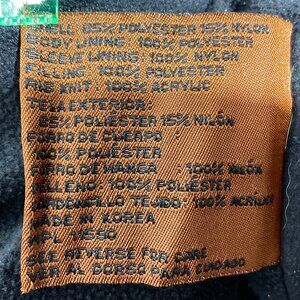 SHELL: 85% POLYESTER 15% NYLON
BODY LINING: 100% POLYESTER
SLEEVE LINING: 100% NYLON
FILLING: 100% POLYESTER
KNIT: 100% ACRYLIC
TELA EXTERIOR:
85% POLIÉSTER 15% NILÓN
FORRO DE CUERPO:
100% POLIÉSTER
FORRO DE MANGA : 100% NILÓN
RELLENO: 100% POLIÉSTER
TEJIDO: 100% ACRÍLICO
MADE IN KOREA
SEE REVERSE FOR CARE
VER AL DORSO PARA CUIDADO